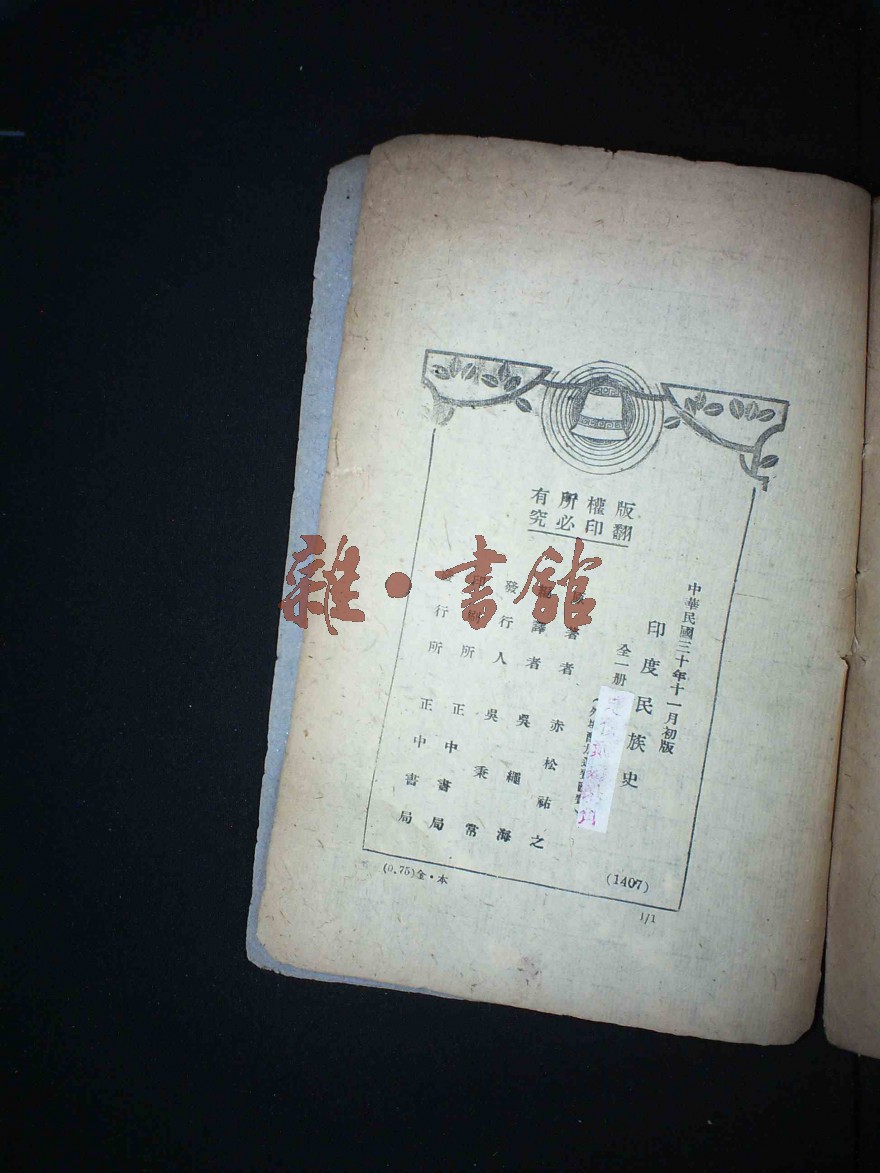 版權所有
翻印必究
中華民國三十年十一月初版
印度民族史
全一册
著者 赤松祐之
譯者 吳繩海
發行人 吳秉常
印 所 正中書局
行所 正中書局
(1407)
(0.75)金·本
1/1
雜·書館